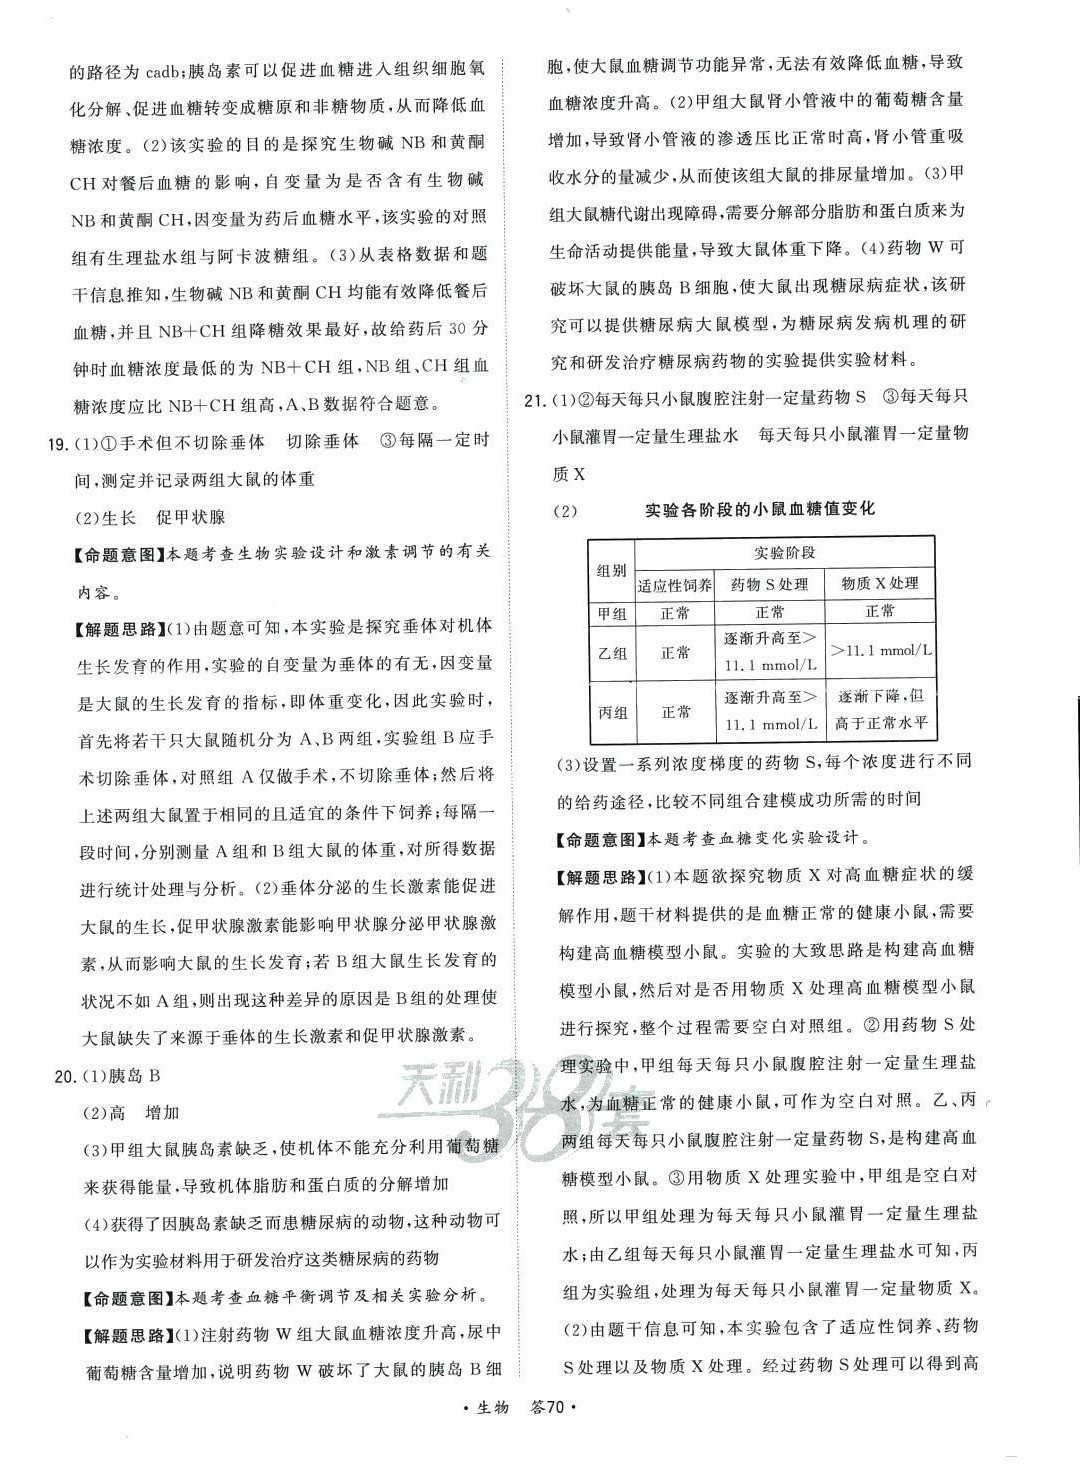 的路径为 cadb;胰岛素可以促进血糖进入组织细胞氧
化分解、促进血糖转变成糖原和非糖物质,从而降低血
糖浓度。(2)该实验的目的是探究生物碱 NB 和黄酮
CH 对餐后血糖的影响,自变量为是否含有生物碱
NB 和黄酮 CH,因变量为药后血糖水平,该实验的对照
组有生理盐水组与阿卡波糖组。(3)从表格数据和题
干信息推知,生物碱 NB 和黄酮 CH 均能有效降低餐后
血糖,并且 NB+CH 组降糖效果最好,故给药后 30 分
钟时血糖浓度最低的为 NB+CH 组,NB 组、CH 组血
糖浓度应比 NB+CH 组高,A、B 数据符合题意。
19. (1)①手术但不切除垂体 切除垂体 ③每隔一定时
间,测定并记录两组大鼠的体重
(2)生长 促甲状腺
【命题意图】本题考查生物实验设计和激素调节的有关
内容。
【解题思路】(1)由题意可知,本实验是探究垂体对机体
生长发育的作用,实验的自变量为垂体的有无,因变量
是大鼠的生长发育的指标,即体重变化,因此实验时,
首先将若干只大鼠随机分为 A、B 两组,实验组 B 应手
术切除垂体,对照组 A 仅做手术,不切除垂体;然后将
上述两组大鼠置于相同的且适宜的条件下饲养;每隔一
段时间,分别测量 A 组和 B 组大鼠的体重,对所得数据
进行统计处理与分析。(2)垂体分泌的生长激素能促进
大鼠的生长,促甲状腺激素能影响甲状腺分泌甲状腺激
素,从而影响大鼠的生长发育;若 B 组大鼠生长发育的
状况不如 A 组,则出现这种差异的原因是 B 组的处理使
大鼠缺失了来源于垂体的生长激素和促甲状腺激素。
20. (1)胰岛 B
(2)高 增加
(3)甲组大鼠胰岛素缺乏,使机体不能充分利用葡萄糖
来获得能量,导致机体脂肪和蛋白质的分解增加
(4)获得了因胰岛素缺乏而患糖尿病的动物,这种动物可
以作为实验材料用于研发治疗这类糖尿病的药物
【命题意图】本题考查血糖平衡调节及相关实验分析。
【解题思路】(1)注射药物 W 组大鼠血糖浓度升高,尿中
葡萄糖含量增加,说明药物 W 破坏了大鼠的胰岛 B 细
胞,使大鼠血糖调节功能异常,无法有效降低血糖,导致
血糖浓度升高。(2)甲组大鼠肾小管液中的葡萄糖含量
增加,导致肾小管液的渗透压比正常时高,肾小管重吸
收水分的量减少,从而使该组大鼠的排尿量增加。(3)甲
组大鼠糖代谢出现障碍,需要分解部分脂肪和蛋白质来为
生命活动提供能量,导致大鼠体重下降。(4)药物 W 可
破坏大鼠的胰岛 B 细胞,使大鼠出现糖尿病症状,该研
究可以提供糖尿病大鼠模型,为糖尿病发病机理的研
究和研发治疗糖尿病药物的实验提供实验材料。
21. (1)②每天每只小鼠腹腔注射一定量药物 S ③每天每只
小鼠灌胃一定量生理盐水 每天每只小鼠灌胃一定量物
质 X
(2) 实验各阶段的小鼠血糖值变化
组别 实验阶段
适应性饲养 药物 S 处理 物质 X 处理
甲组 正常 正常 正常
乙组 正常 逐渐升高至> 11.1 mmol/L >11.1 mmol/L
丙组 正常 逐渐升高至> 11.1 mmol/L 逐渐下降,但高于正常水平
(3)设置一系列浓度梯度的药物 S,每个浓度进行不同
的给药途径,比较不同组合建模成功所需的时间
【命题意图】本题考查血糖变化实验设计。
【解题思路】(1)本题欲探究物质 X 对高血糖症状的缓
解作用,题干材料提供的是血糖正常的健康小鼠,需要
构建高血糖模型小鼠。实验的大致思路是构建高血糖
模型小鼠,然后对是否用物质 X 处理高血糖模型小鼠
进行探究,整个过程需要空白对照组。②用药物 S 处
理实验中,甲组每天每只小鼠腹腔注射一定量生理盐
水,为血糖正常的健康小鼠,可作为空白对照。乙、丙
两组每天每只小鼠腹腔注射一定量药物 S,是构建高血
糖模型小鼠。③用物质 X 处理实验中,甲组是空白对
照,所以甲组处理为每天每只小鼠灌胃一定量生理盐
水;由乙组每天每只小鼠灌胃一定量生理盐水可知,丙
组为实验组,处理为每天每只小鼠灌胃一定量物质 X。
(2)由题干信息可知,本实验包含了适应性饲养、药物
S 处理以及物质 X 处理。经过药物 S 处理可以得到高
天利38套
·生物 答70·